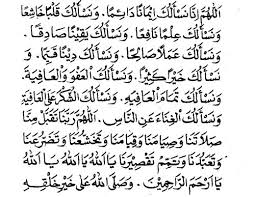 اَللّٰهُمَّ اِنَّا نَسْأَلُكَ اِيْمَانًا دَائِمًا. وَنَسْأَلُكَ قَلْبًا خَاشِعًا
وَنَسْأَلُكَ عِلْمًا نَافِعًا. وَنَسْأَلُكَ يَقِيْنًا صَادِقًا.
وَنَسْأَلُكَ عَمَلًا صَالِحًا. وَنَسْأَلُكَ دِيْنًا قَيِّمًا.
وَنَسْأَلُكَ خَيْرًا كَثِيْرًا. وَنَسْأَلُكَ الْعَفْوَ وَالْعَافِيَةَ.
وَنَسْأَلُكَ تَمَامَ الْعَافِيَةِ. وَنَسْأَلُكَ الشُّكْرَ عَلَى الْعَافِيَةِ
وَنَسْأَلُكَ الْغِنَاءَ عَنِ النَّاسِ. اَللّٰهُمَّ رَبَّنَا تَقَبَّلْ مِنَّا
صَلَاتَنَا وَصِيَامَنَا وَقِيَامَنَا وَتَخَشُّعَنَا وَتَضَرُّعَنَا
وَتَعَبُّدَنَا وَتَمِّمْ تَقْصِيْرَنَا يَا اَللهُ يَا اَللهُ يَا اَللهُ
يَا اَرْحَمَ الرَّاحِمِيْنَ. وَصَلَّى اللهُ عَلَى خَيْرِ خَلْقِهِ